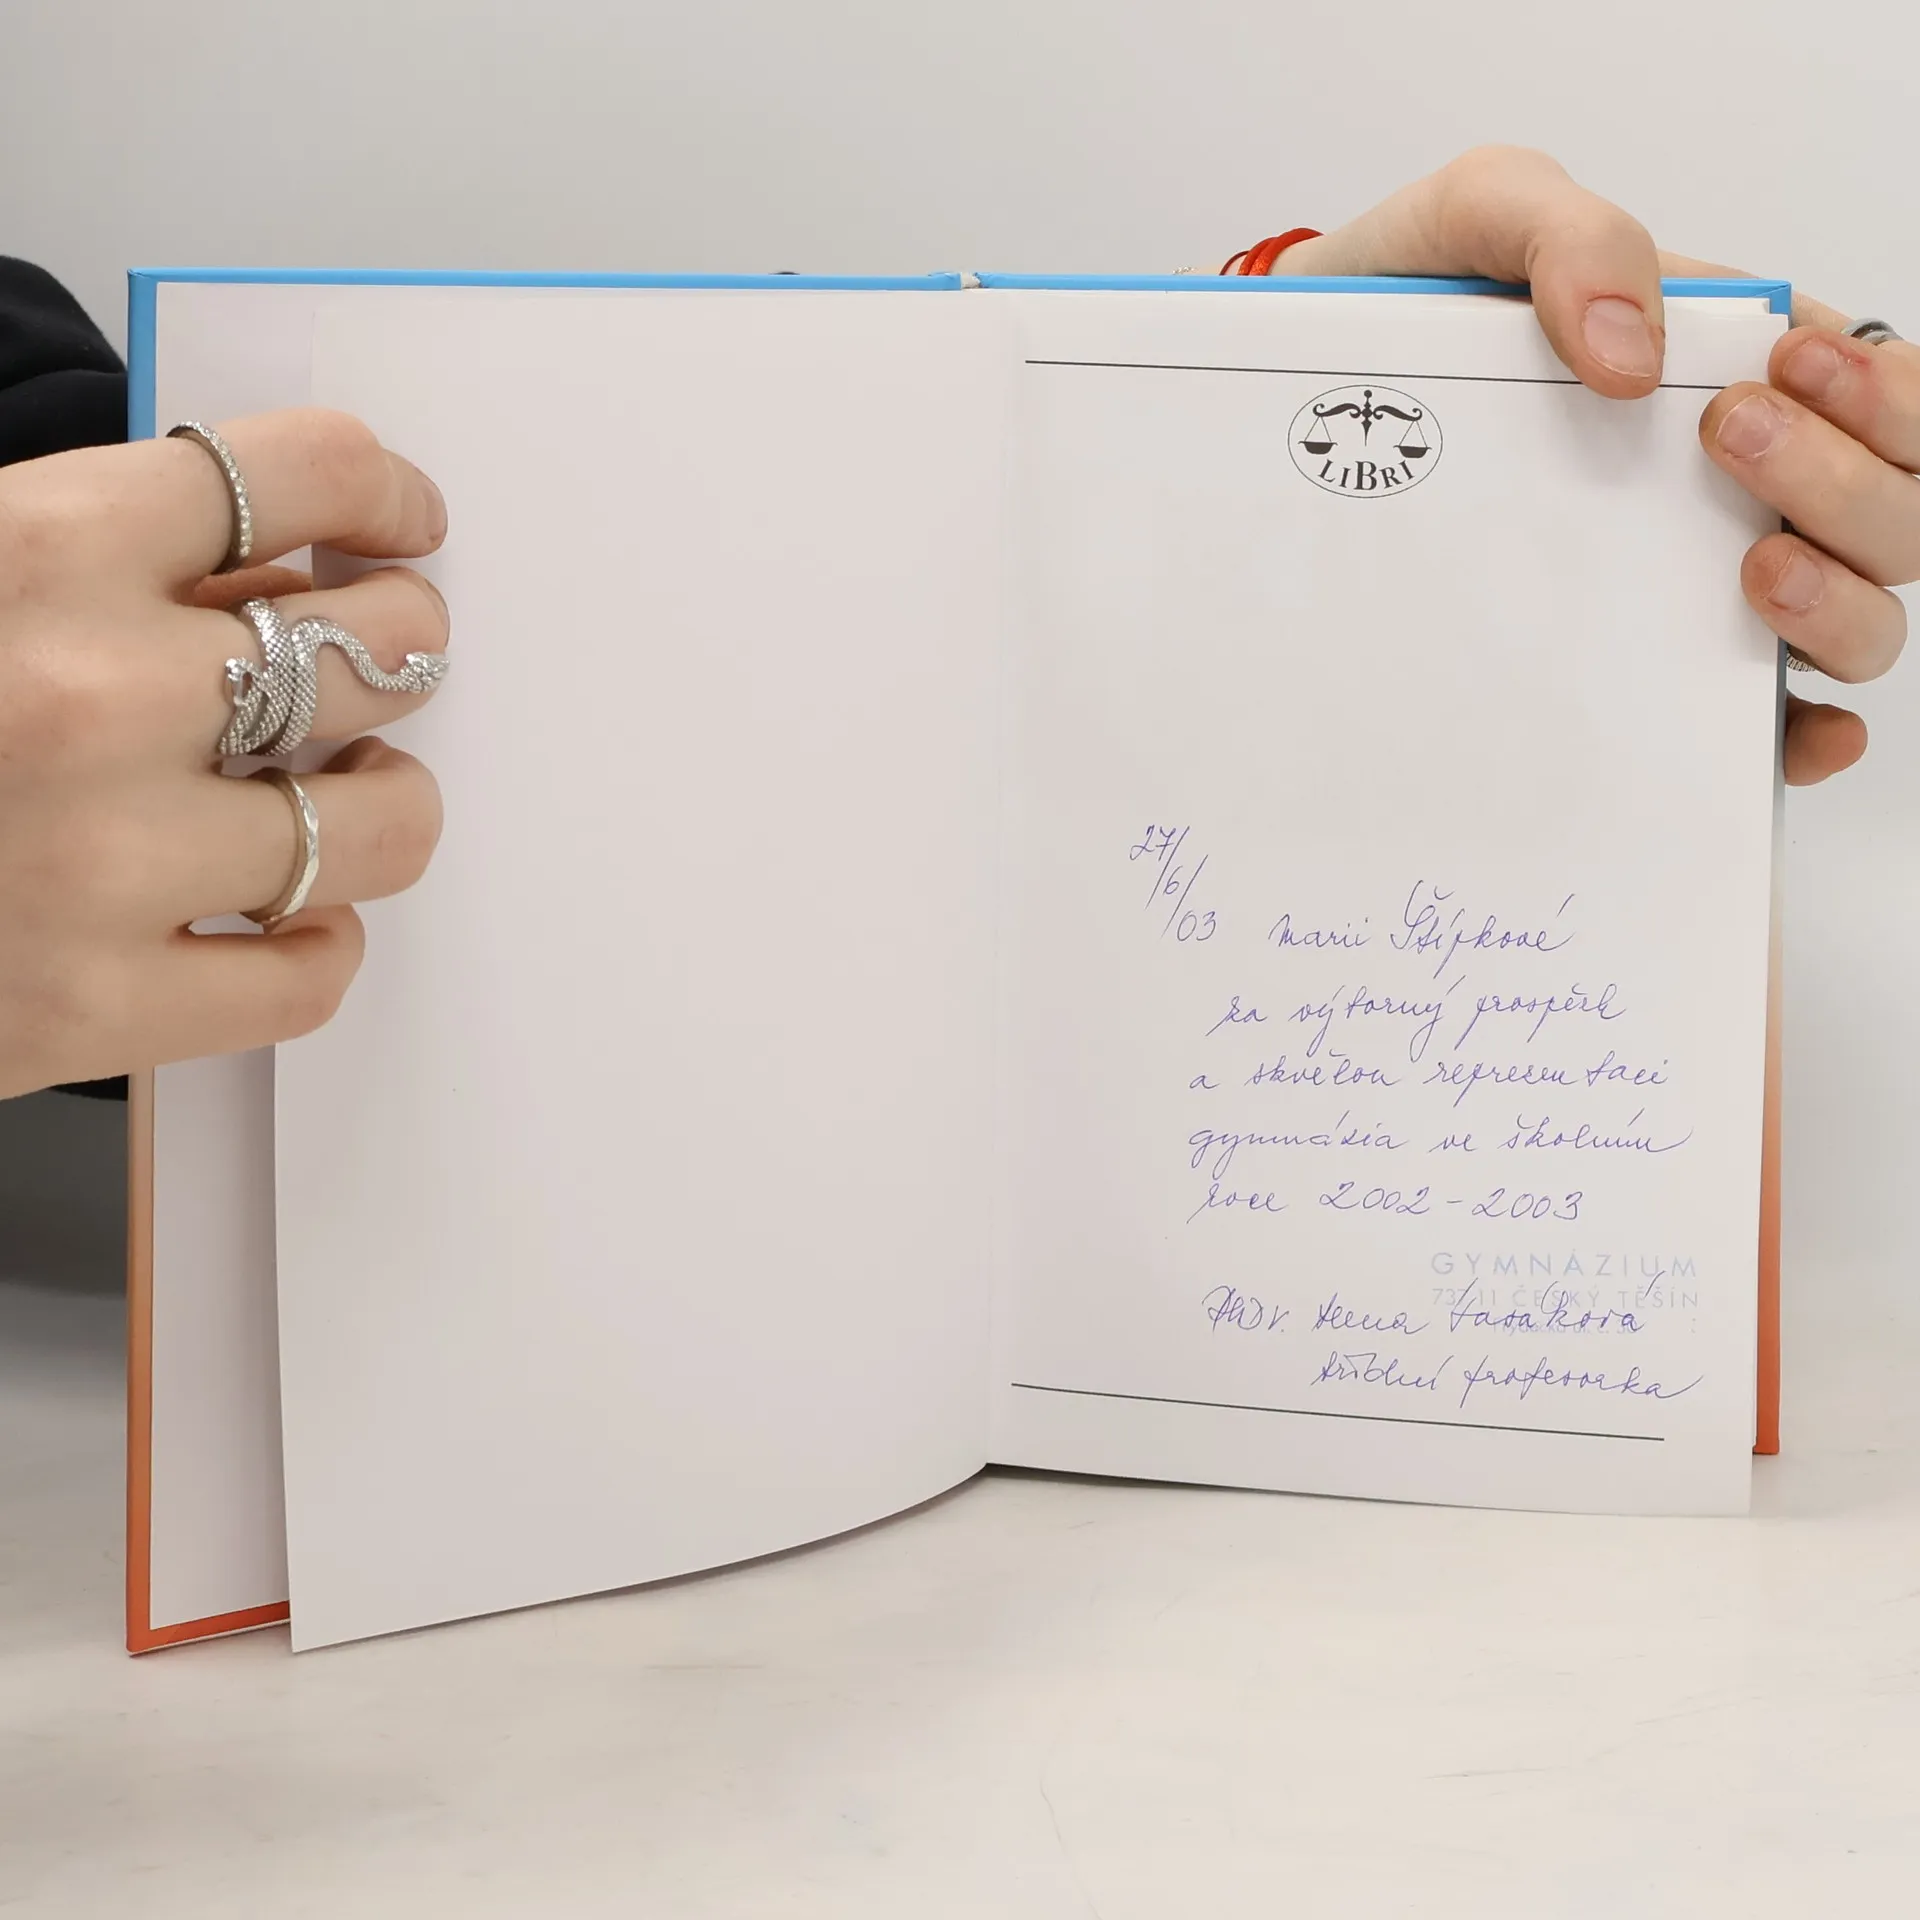 LIBRI
27/
/6/
/03 Marii Štípkové
za výborný prospěch
a skvělou representaci
gymnázia ve školním
roce 2002 - 2003
GYMNÁZIUM
737 11 ČESKÝ TĚŠÍN
PhDr. Anna
třídní profesorka